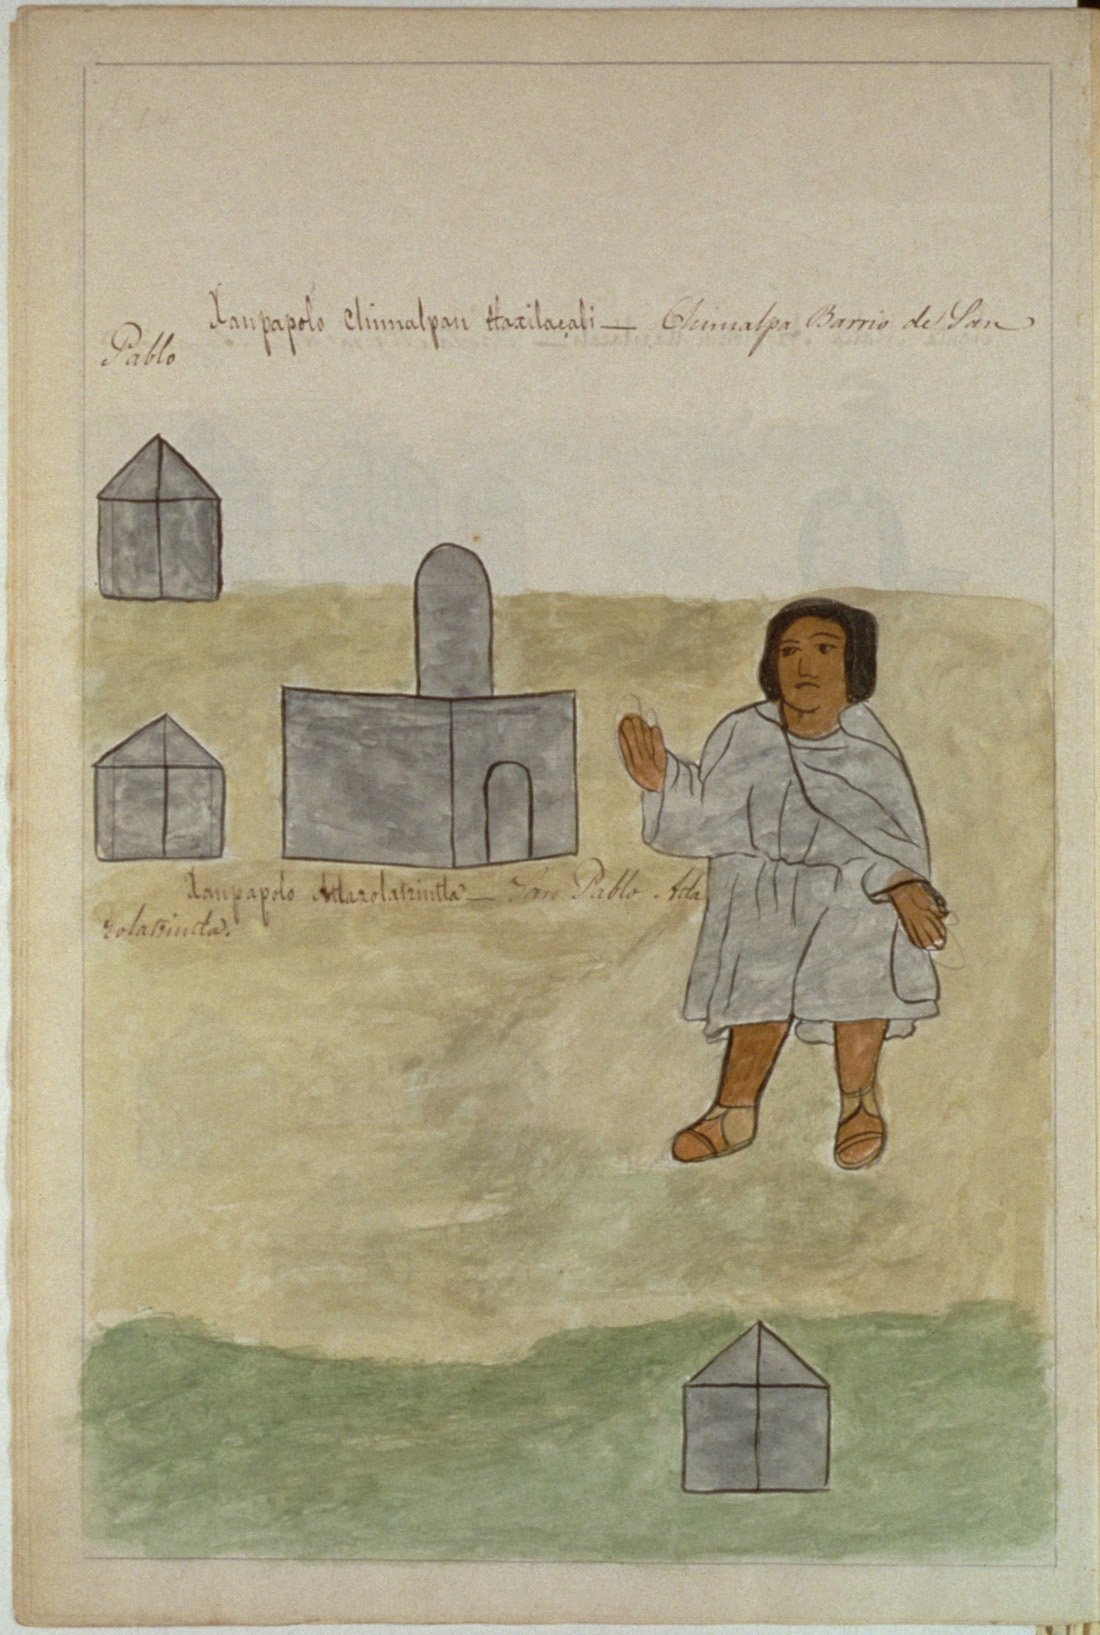 Xanpapolo Chimalpan tlaxilacali — Chimalpa Barrio de San
Pablo
Xanpapolo Atlazolatzintla — San Pablo Atla
zolatzintla.